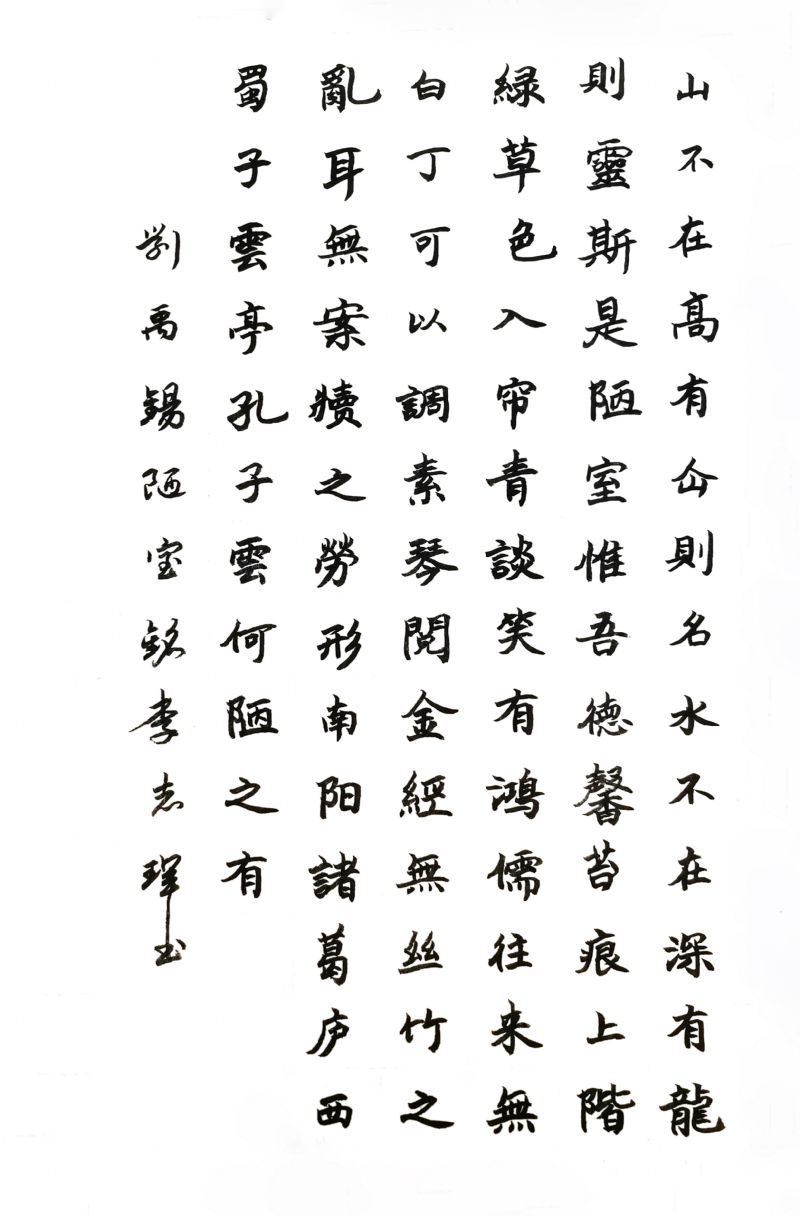 山不在髙有仚則名水不在深有龍
則靈斯是陋室惟吾德馨苔痕上階
緑草色入帘青談笑有鴻儒往来無
白丁可以調素琴閱金經無絲竹之
亂耳無案牘之勞形南阳諸葛庐西
蜀子雲亭孔子雲何陋之有
劉禹錫陋室銘李志琿书